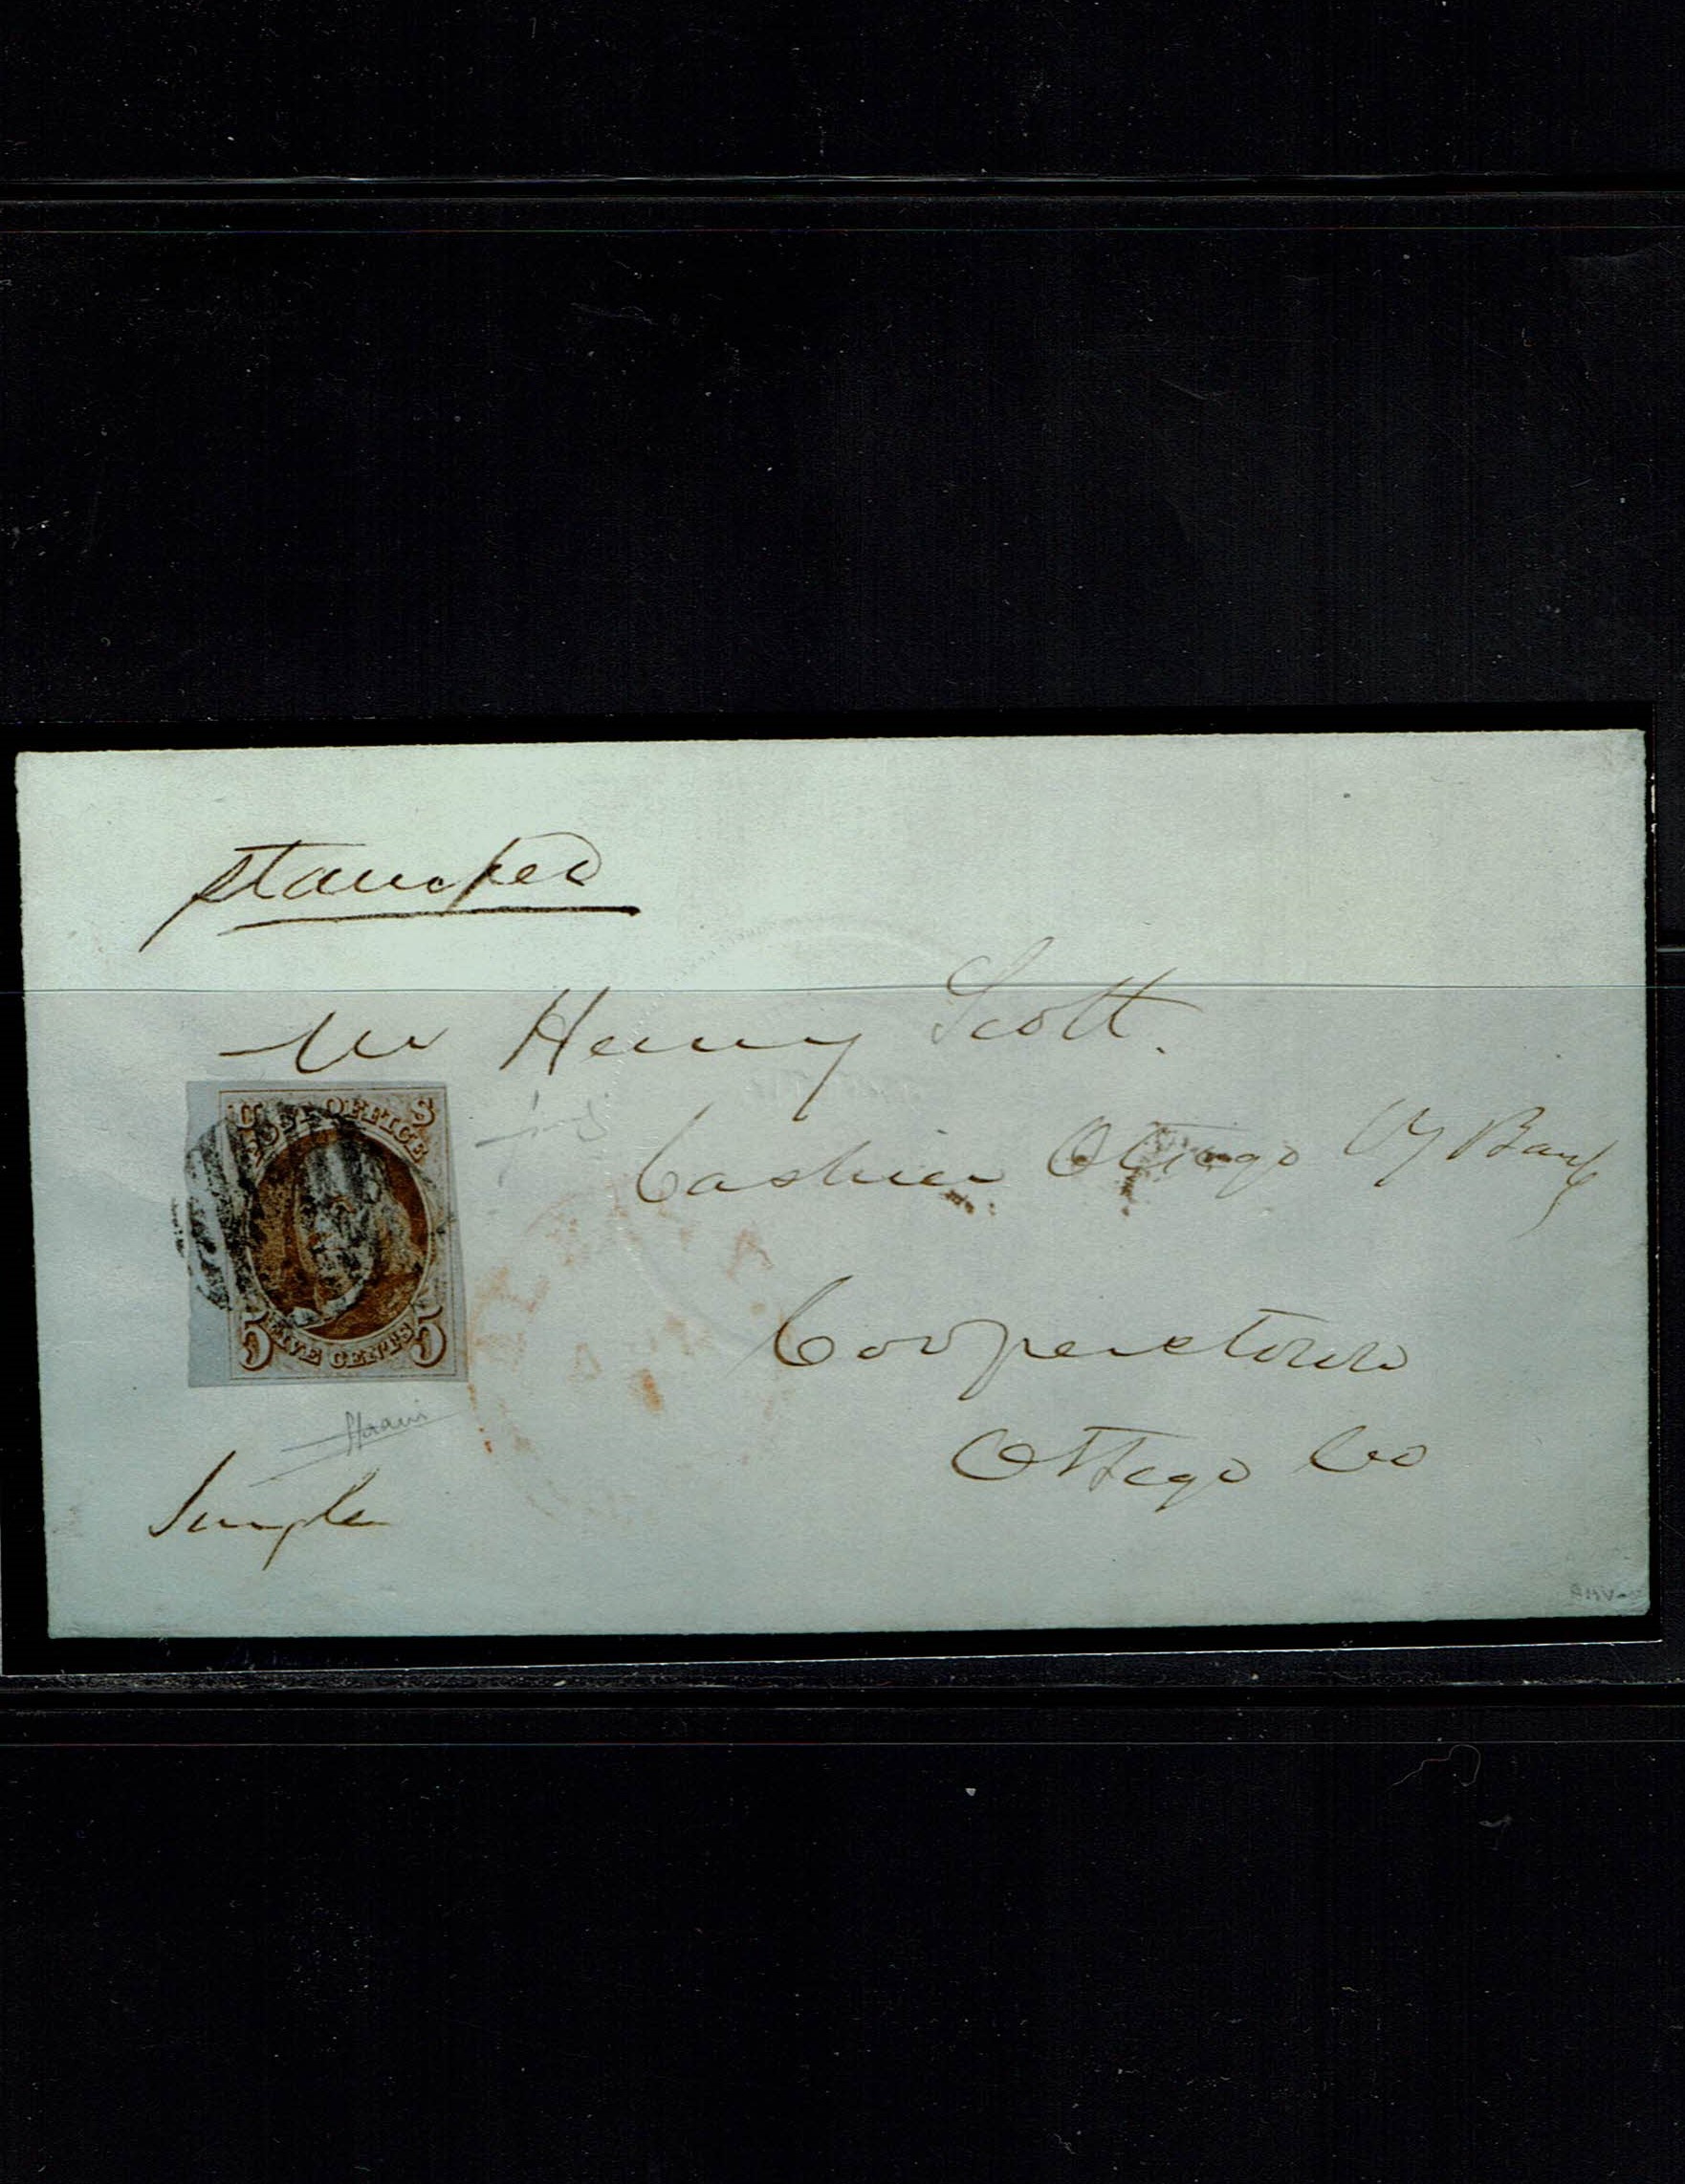 stamped
Mr Henry Scott.
Cashier Otsego Cy Bank
U S
POST OFFICE
5 FIVE CENTS 5
Cooperstown
Otsego Co
Single